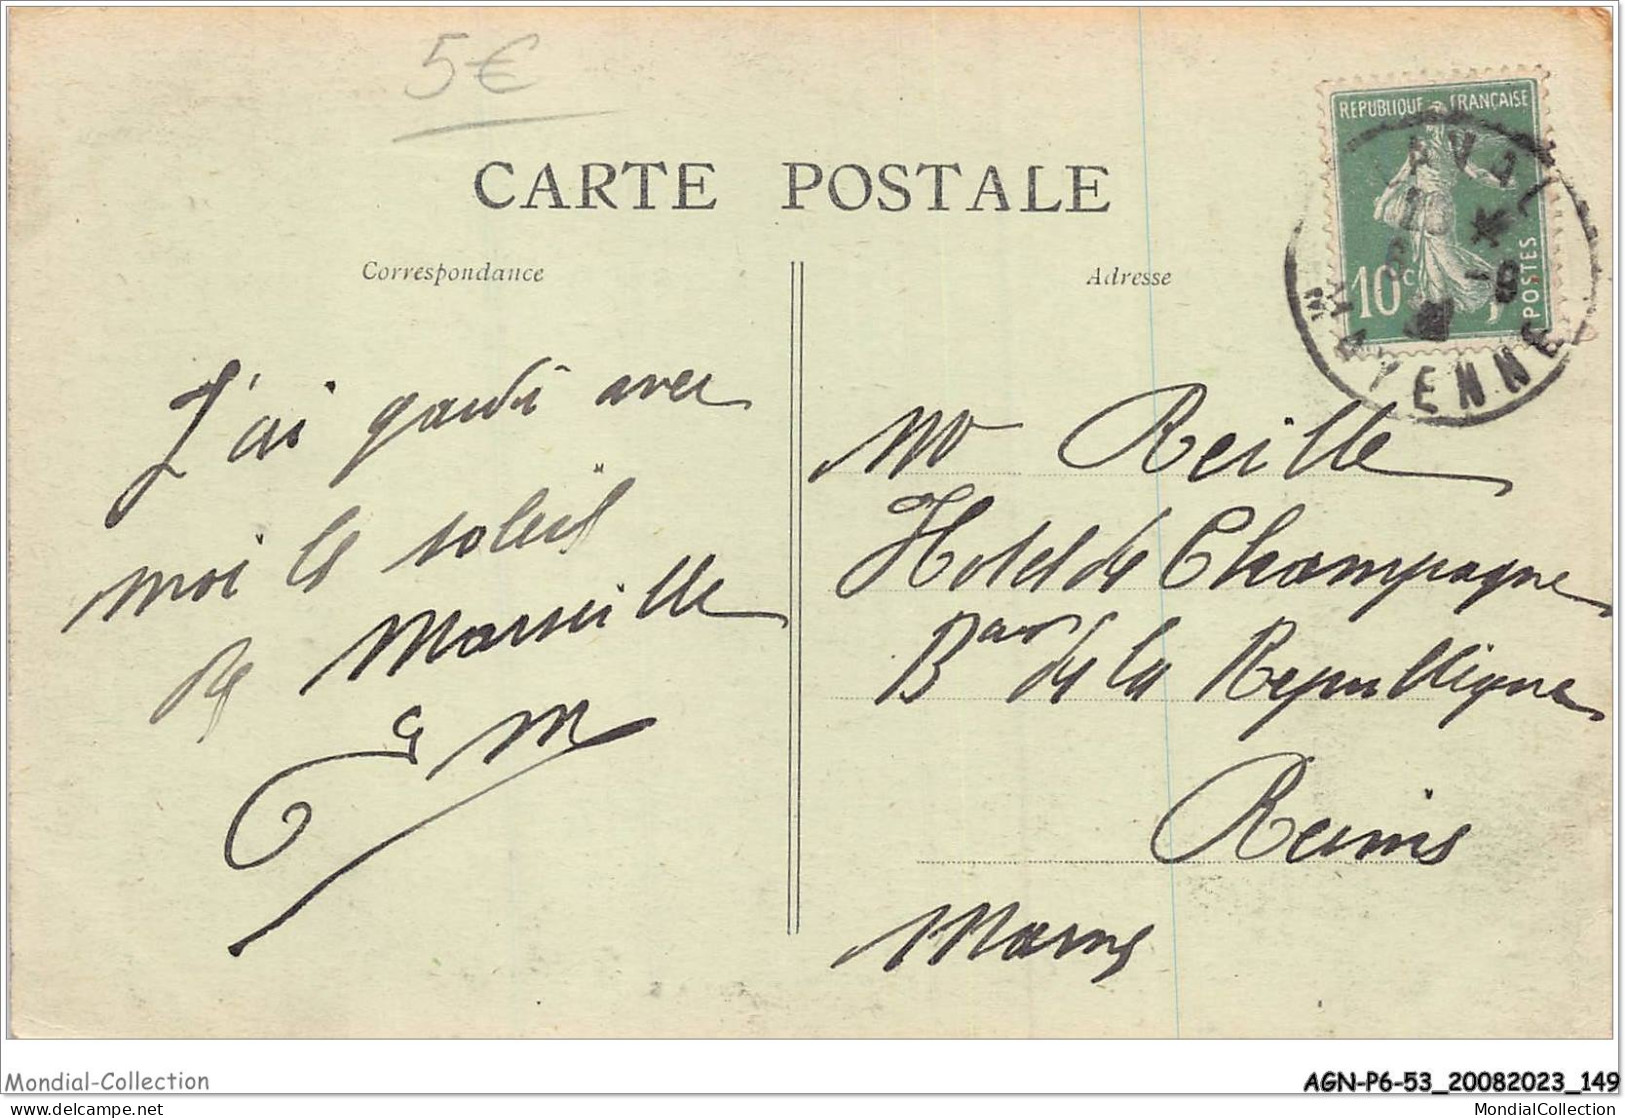 5€
CARTE POSTALE
Correspondance
Adresse
REPUBLIQUE FRANÇAISE
10c
POSTES
AVAL
MAYENNE
J'ai gardé avec
moi le soleil
de Marseille
GM
Mr Reille
Hotel de Champagne
Bard de la Republique
Reims
Marne
Mondial-Collection
AGN-P6-53_20082023_149
delcampe.net
MondialCollection